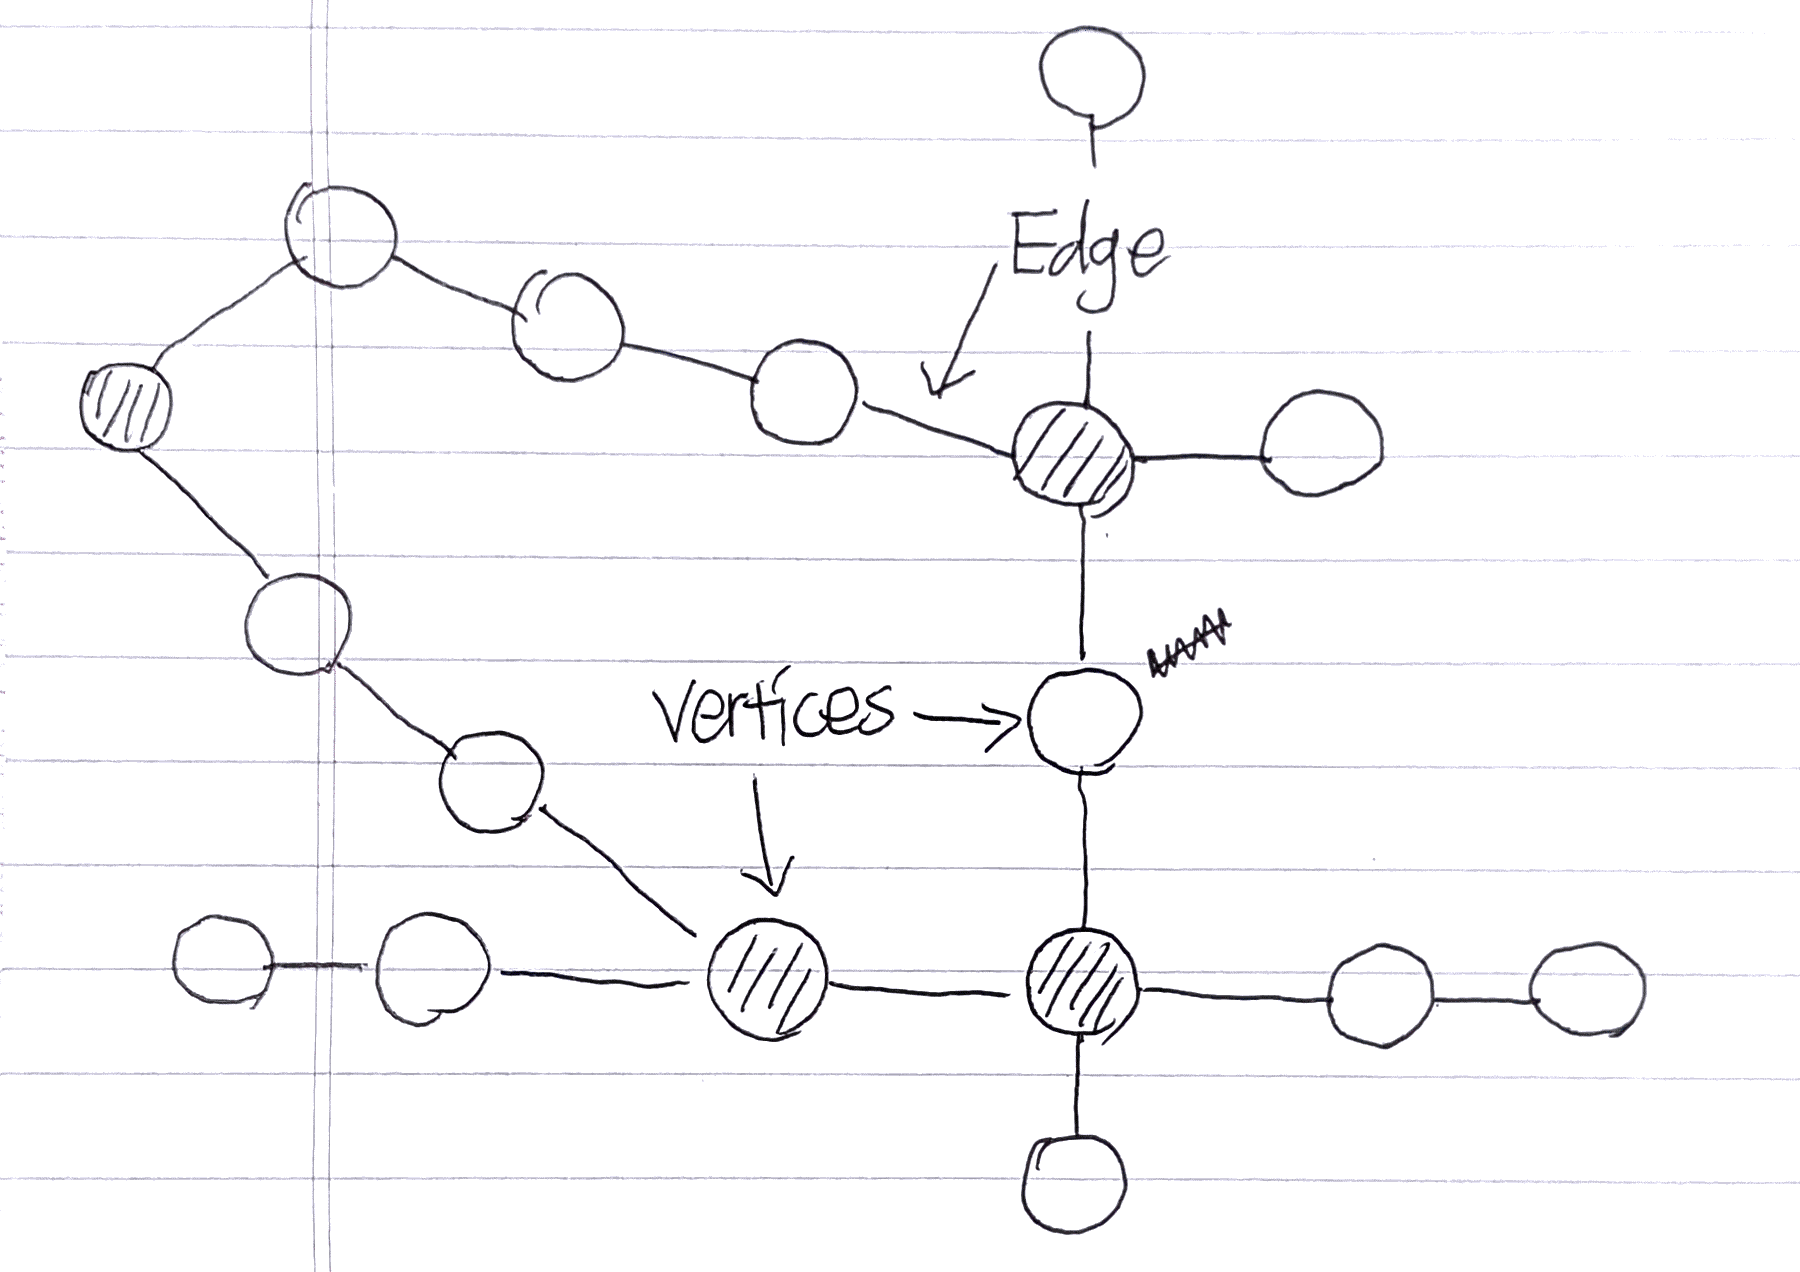 Edge
vertices